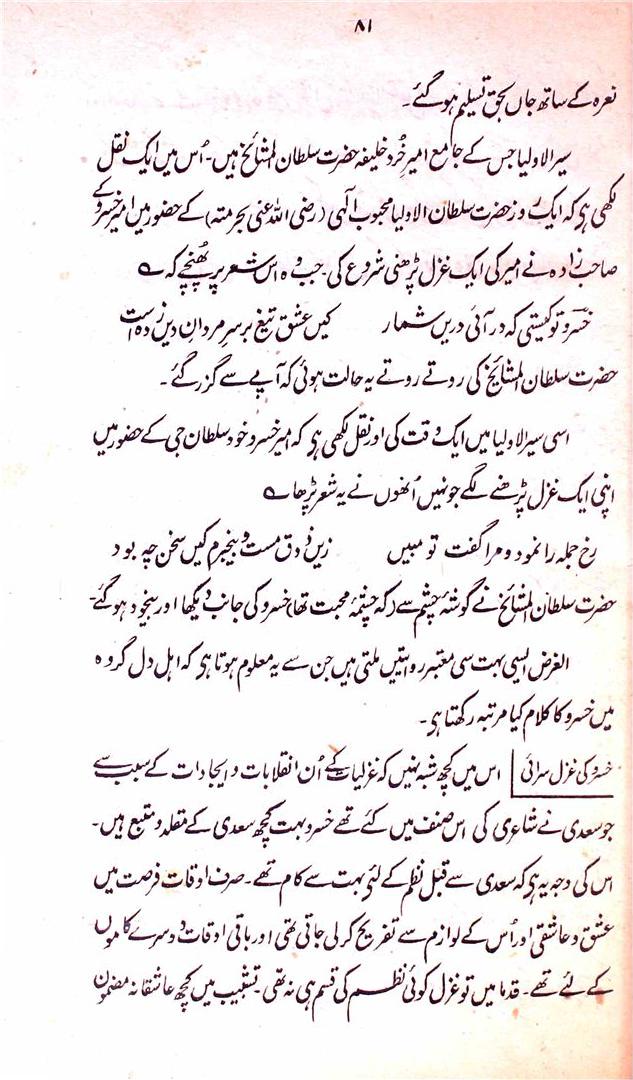 ۸۱
نعرہ کے ساتھ جاں بحق تسلیم ہوگئے۔
سیر الاولیا جس کے جامع امیر خُرد خلیفہ حضرت سلطان المشائخ ہیں۔ اُس میں ایک نقل
لکھی ہی کہ ایک روز حضرت سلطان الاولیا محبوب الٰہی (رضی اللہ عنی بحرمتہ) کے حضور میں امیر خسرو کے
صاحب زادہ نے امیر کی ایک غزل پڑھنی شروع کی۔ جب وہ اس شعر پر پُہنچے کہ ؎
خسرو تو کیستی کہ در آئی دریں شمار کیں عشق تیغ بر سر مردانِ دیں زدہ است
حضرت سلطان المشائخ کی روتے روتے یہ حالت ہوئی کہ آپے سے گزر گئے۔
اسی سیر الاولیا میں ایک وقت کی اور نقل لکھی ہی کہ امیر خسرو خود سلطان جی کے حضور میں
اپنی ایک غزل پڑھنے لگے جونہیں اُنھوں نے یہ شعر پڑھا ؎
رخ جملہ را نمود و مرا گفت تو مبیں زیں ذوق مست و بیخبرم کیں سخن چہ بود
حضرت سلطان المشائخ نے گوشۂ چشم سے (کہ چشمۂ محبت تھا) خسرو کی جانب دیکھا اور بیخود ہوگئے۔
الغرض ایسی بہت سی معتبر روایتیں ملتی ہیں جن سے یہ معلوم ہوتا ہی کہ اہل دل گروہ
میں خسرو کا کلام کیا مرتبہ رکھتا ہی۔
خسرو کی غزل سرائی اس میں کچھ شبہ نہیں کہ غزلیات کے اُن انقلابات و ایجادات کے سبب سے
جو سعدی نے شاعری کی اس صنف میں کئے تھے خسرو بہت کچھ سعدی کے مقلد و متبع ہیں۔
اس کی وجہ یہ ہی کہ سعدی سے قبل نظم کے لئے بہت سے کام تھے۔ صرف اوقات فرصت میں
عشق و عاشقی اور اُس کے لوازم سے تفریح کر لی جاتی تھی اور باقی اوقات دوسرے کاموں
کے لئے تھے۔ قدما میں تو غزل کوئی نظم کی قسم ہی نہ تھی۔ تشبیب میں کچھ عاشقانہ مضمون